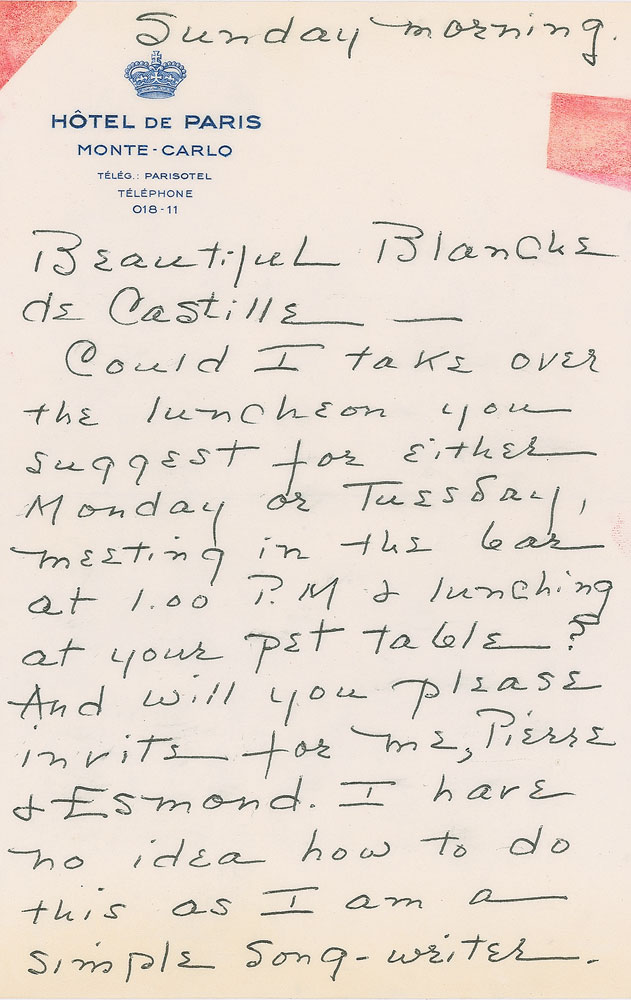 Sunday morning.
HÔTEL DE PARIS
MONTE-CARLO
TÉLÉG.: PARISOTEL
TÉLÉPHONE
018-11
Beautiful Blanche
de Castille —
Could I take over
the luncheon you
suggest for either
Monday or Tuesday,
meeting in the bar
at 1.00 P.M & lunching
at your pet table?
And will you please
invite for me, Pierre
& Esmond. I have
no idea how to do
this as I am a
simple song-writer.